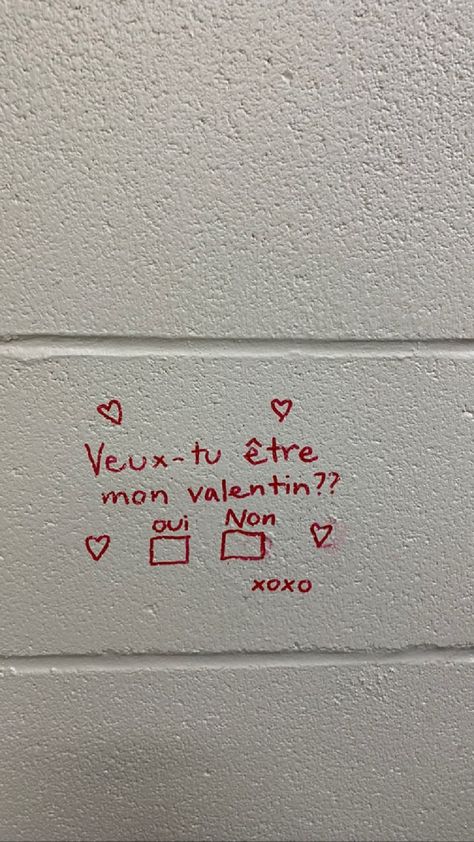 Veux-tu être
mon valentin??
oui Non
xoxo